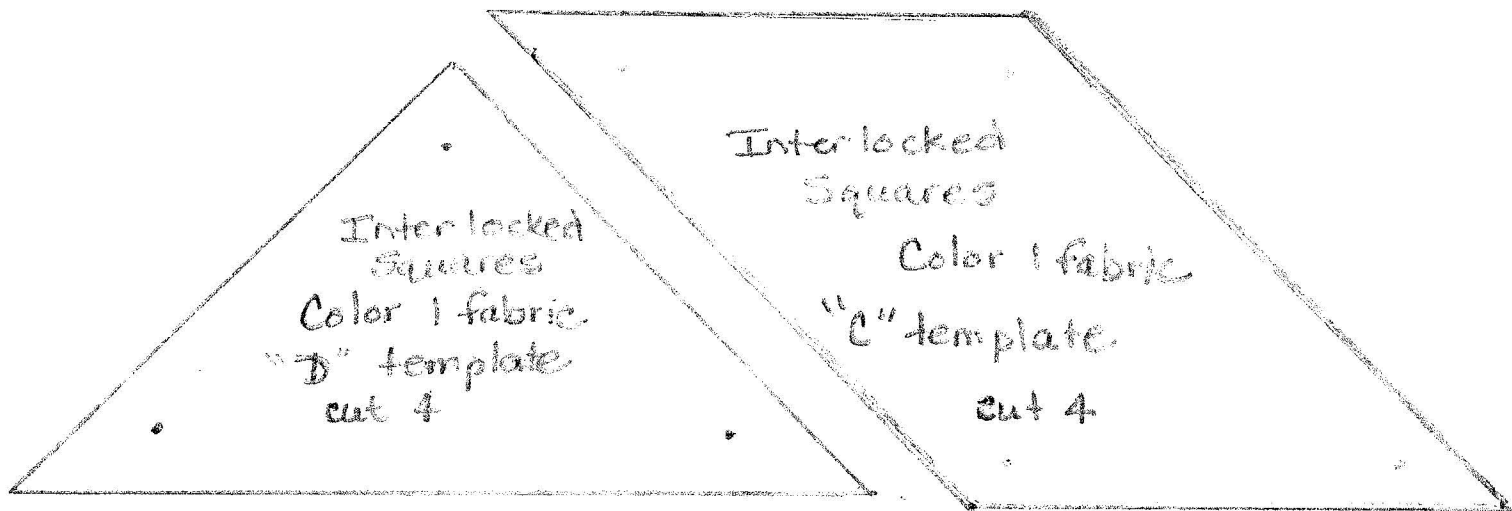 Interlocked
Squares
Color 1 fabric
"D" template
cut 4
Interlocked
Squares
Color 1 fabric
"C" template
cut 4